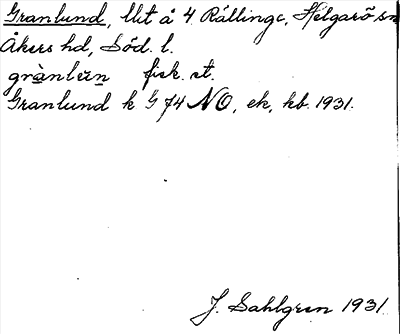 Granlund, llit å 4 Rällinge, Helgarö sn
Åkers hd, Söd. l.
fisk. st.
Granlund k G 74 NO, ek, kb. 1931.
J. Sahlgren 1931.